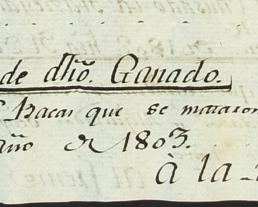 de dho. Ganado.
Bacas que se mataron
año de 1803.
à la